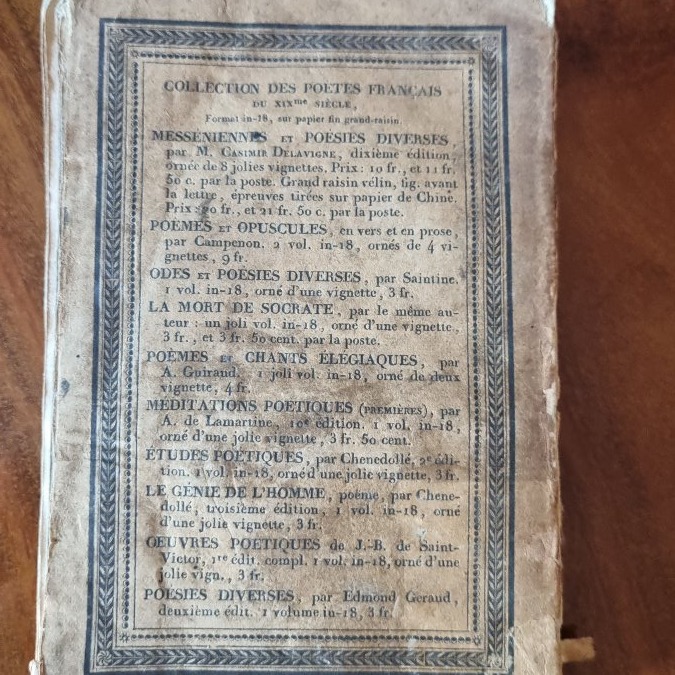 COLLECTION DES POETES FRANÇAIS
DU XIXme SIÈCLE,
Format in-18, sur papier fin grand-raisin.
MESSÉNIENNES ET POESIES DIVERSES,
par M. CASIMIR DELAVIGNE, dixième édition,
ornée de 8 jolies vignettes. Prix : 10 fr., et 11 fr.
50 c. par la poste. Grand raisin vélin, fig. avant
la lettre, épreuves tirées sur papier de Chine.
Prix : 20 fr., et 21 fr. 50 c. par la poste.
POÈMES ET OPUSCULES, en vers et en prose,
par Campenon. 2 vol. in-18, ornés de 4 vi-
gnettes, 9 fr.
ODES ET POESIES DIVERSES, par Saintine.
1 vol. in-18, orné d'une vignette, 3 fr.
LA MORT DE SOCRATE, par le même au-
teur : un joli vol. in-18, orné d'une vignette,
3 fr., et 3 fr. 50 cent. par la poste.
POÈMES ET CHANTS ÉLÉGIAQUES, par
A. Guiraud. 1 joli vol. in-18, orné de deux
vignette, 4 fr.
MÉDITATIONS POETIQUES (PREMIÈRES), par
A. de Lamartine, 10e édition. 1 vol. in-18,
orné d'une jolie vignette, 3 fr. 50 cent.
ÉTUDES POETIQUES, par Chenedollé, 2e édi-
tion. 1 vol. in-18, orné d'une jolie vignette, 3 fr.
LE GÉNIE DE L'HOMME, poème, par Chene-
dollé, troisième édition, 1 vol. in-18, orné
d'une jolie vignette, 3 fr.
OEUVRES POETIQUES de J.-B. de Saint-
Victor, 1re édit. compl. 1 vol. in-18, orné d'une
jolie vign., 3 fr.
POESIES DIVERSES, par Edmond Geraud,
deuxième édit. 1 volume in-18, 3 fr.